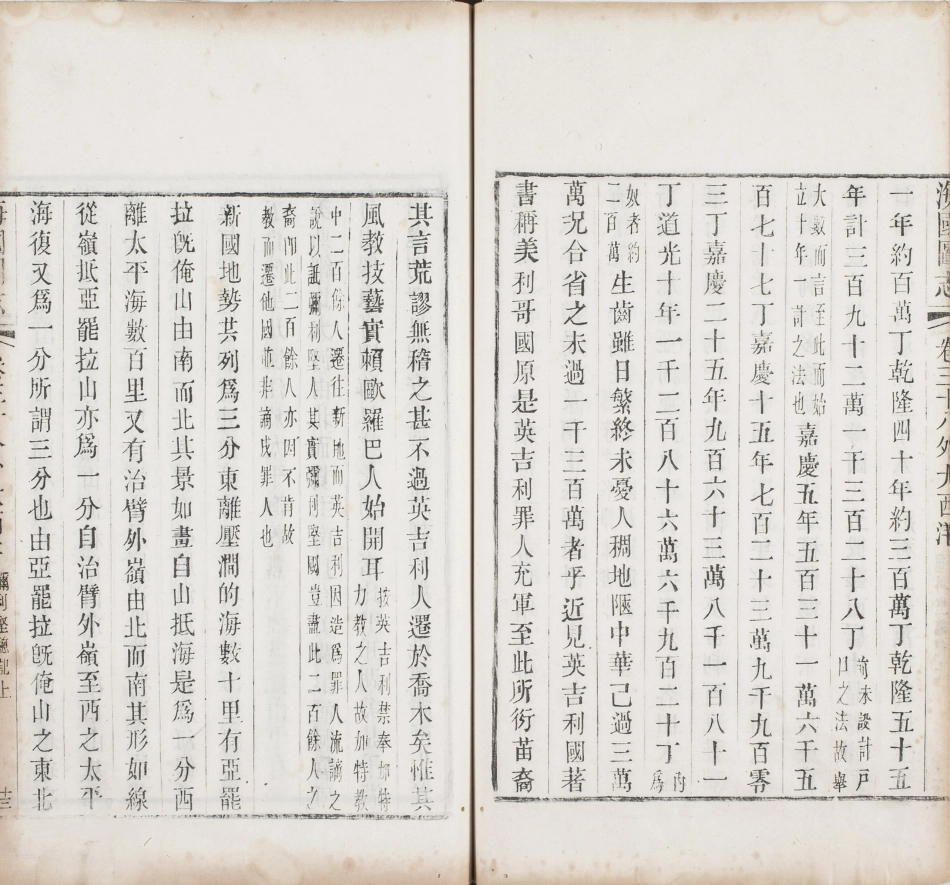 海國圖志 卷三十八外大西洋
一年約百萬丁乾隆四十年約三百萬丁乾隆五十五
年計三百九十二萬一千三百二十八丁前未設計戶口之法故舉
大數而言至此而始立十年一計之法也嘉慶五年五百三十一萬六千五
百七十七丁嘉慶十五年七百二十三萬九千九百零
三丁嘉慶二十五年九百六十三萬八千一百八十一
丁道光十年一千二百八十六萬六千九百二十丁內爲
奴者約二百萬生齒雖日繁終未憂人稠地陿中華已過三萬
萬況合省之未過一千三百萬者乎近見英吉利國著
書稱美利哥國原是英吉利罪人充軍至此所衍苗裔
其言荒謬無稽之甚不過英吉利人遷於喬木矣惟其
風教技藝實賴歐羅巴人始開耳按英吉利禁奉加特力教之人故加特教
中二百餘人遷往新地而英吉利因造爲罪人流謫之
說以詆彌利堅人其實彌利堅國豈盡此二百餘人之
裔卽此二百餘人亦因不肯故
教而遷他國並非謫戍罪人也
新國地勢共列爲三分東離壓澗的海數十里有亞罷
拉旣俺山由南而北其景如畫自山抵海是爲一分西
離太平海數百里又有治臂外嶺由北而南其形如線
從嶺抵亞罷拉山亦爲一分自治臂外嶺至西之太平
海復又爲一分所謂三分也由亞罷拉旣俺山之東北
彌利堅總記上 十三